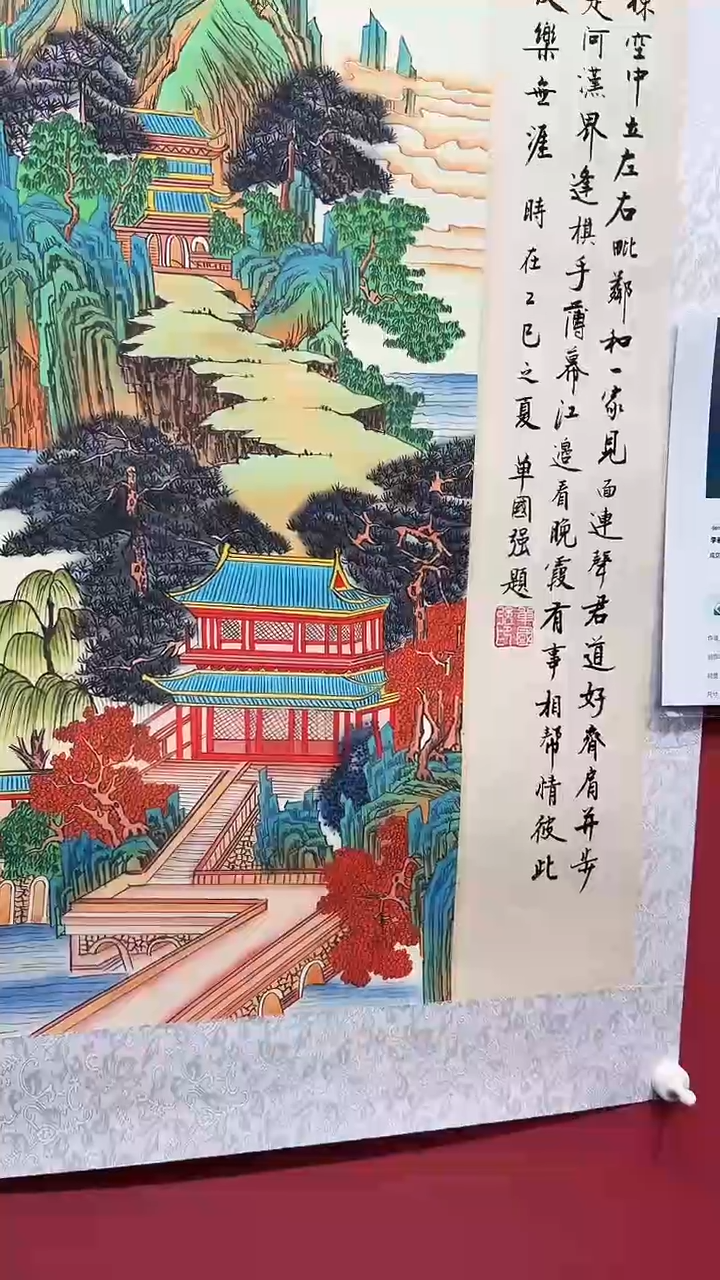 空中立左右毗鄰和一家見面連聲君道好齊肩并步
河漢界逢棋手薄幕江邊看晚霞有事相幫情彼此
樂無涯 時在乙巳之夏 單國强題